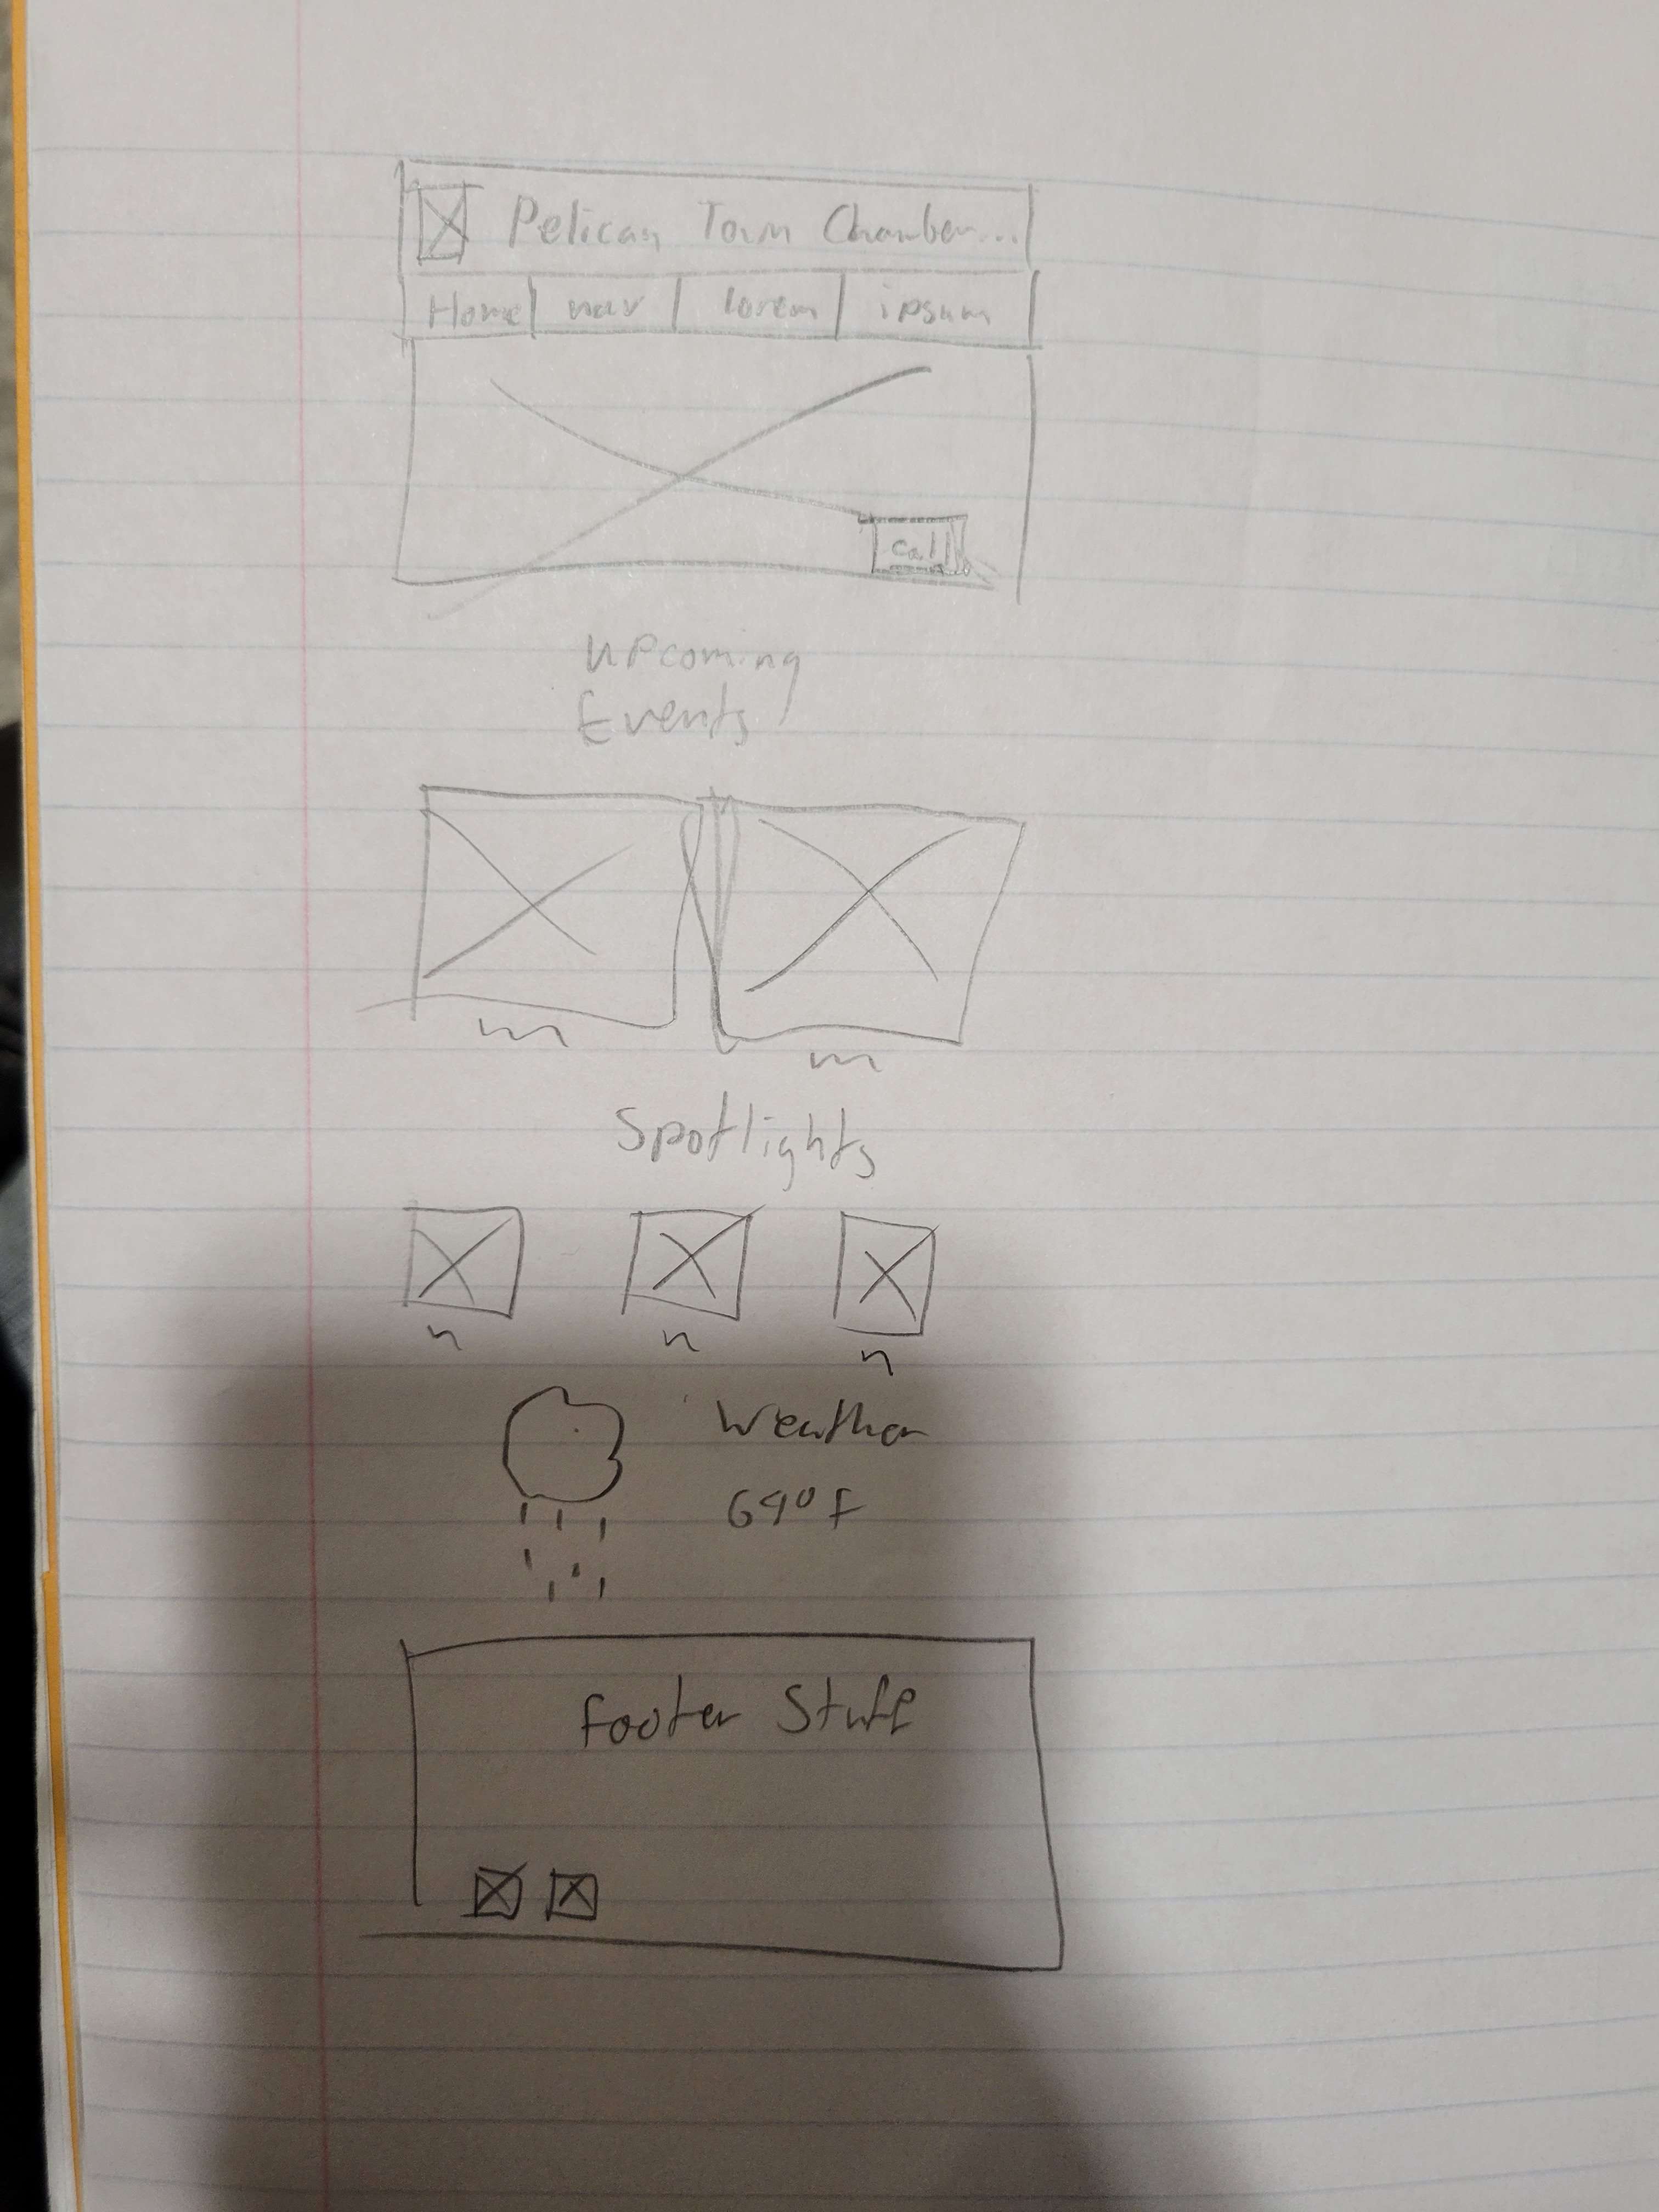 Pelican Town Chamber...
Home nav lorem ipsum
call
upcoming
Events
Spotlights
Weather
69° F
Footer Stuff